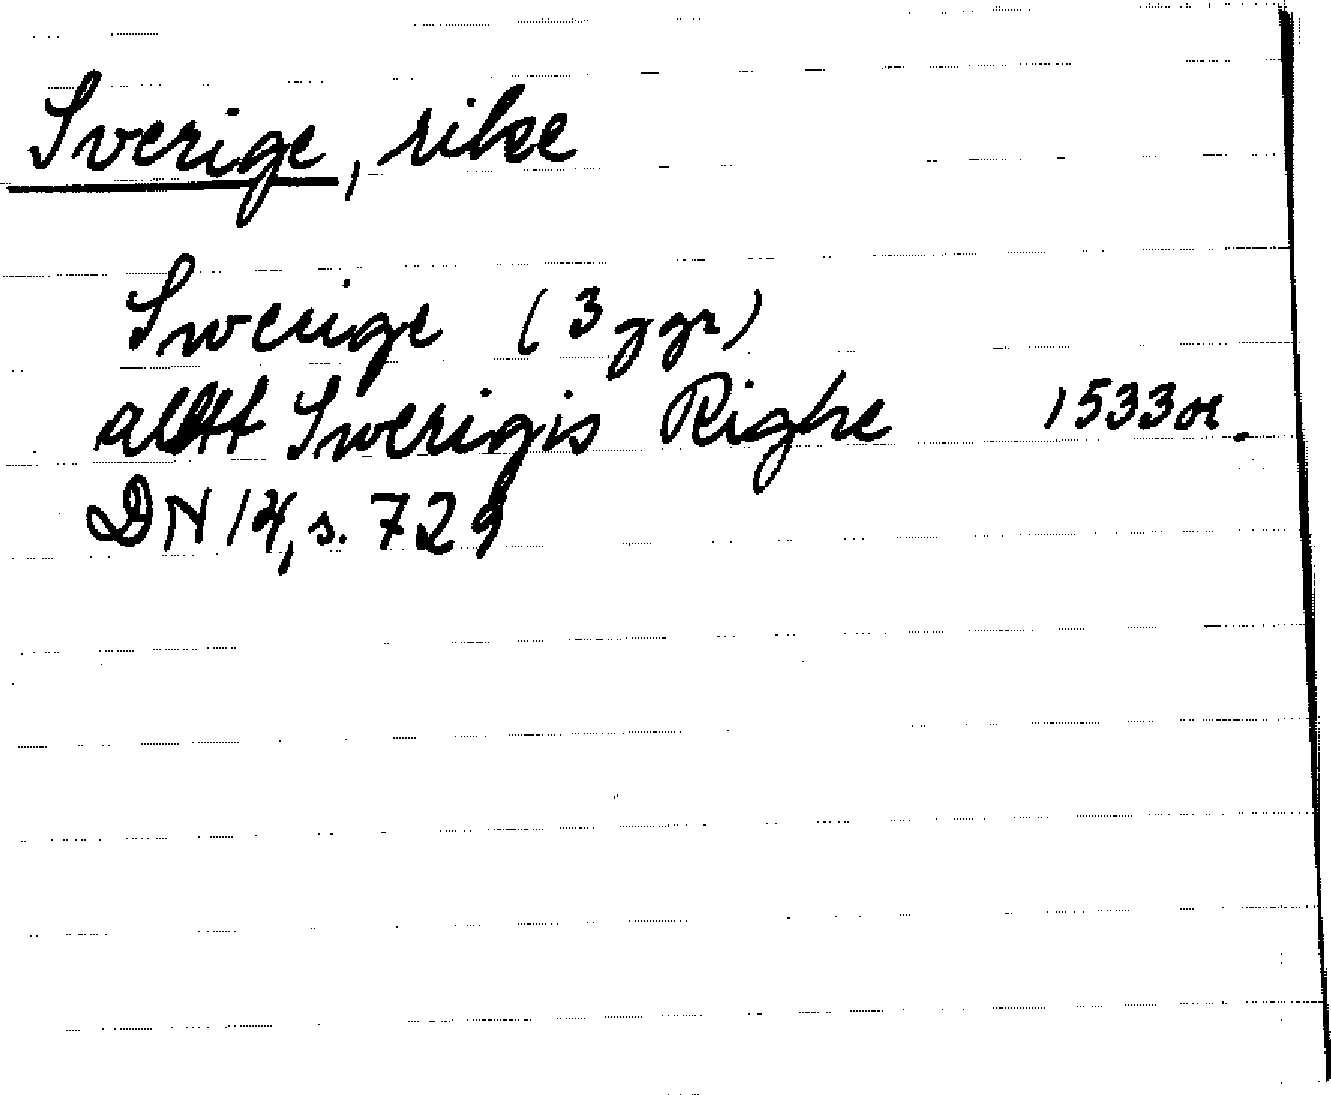 Sverige, rike
Swerige (3 ggr)
alltt Swerigis Righe 1533 or.
DN 14, s. 729